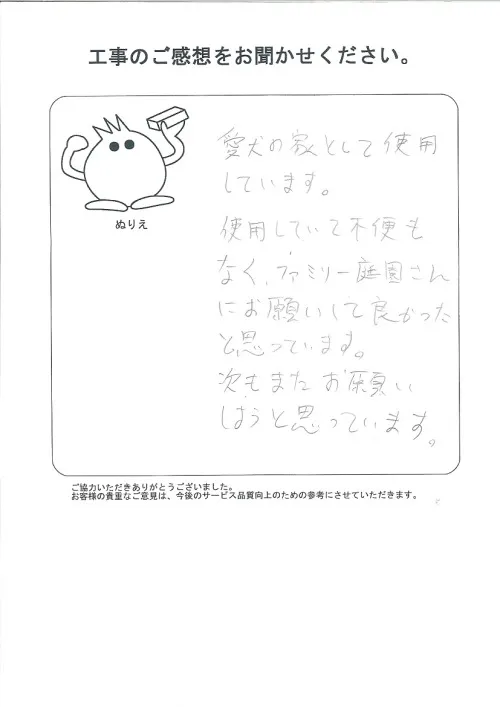 工事のご感想をお聞かせください。
ぬりえ
愛犬の家として使用
しています。
使用していて不便も
なく、ファミリー庭園さん
にお願いして良かった
と思っています。
次もまたお願い
しようと思っています。
ご協力いただきありがとうございました。
お客様の貴重なご意見は、今後のサービス品質向上のための参考にさせていただきます。